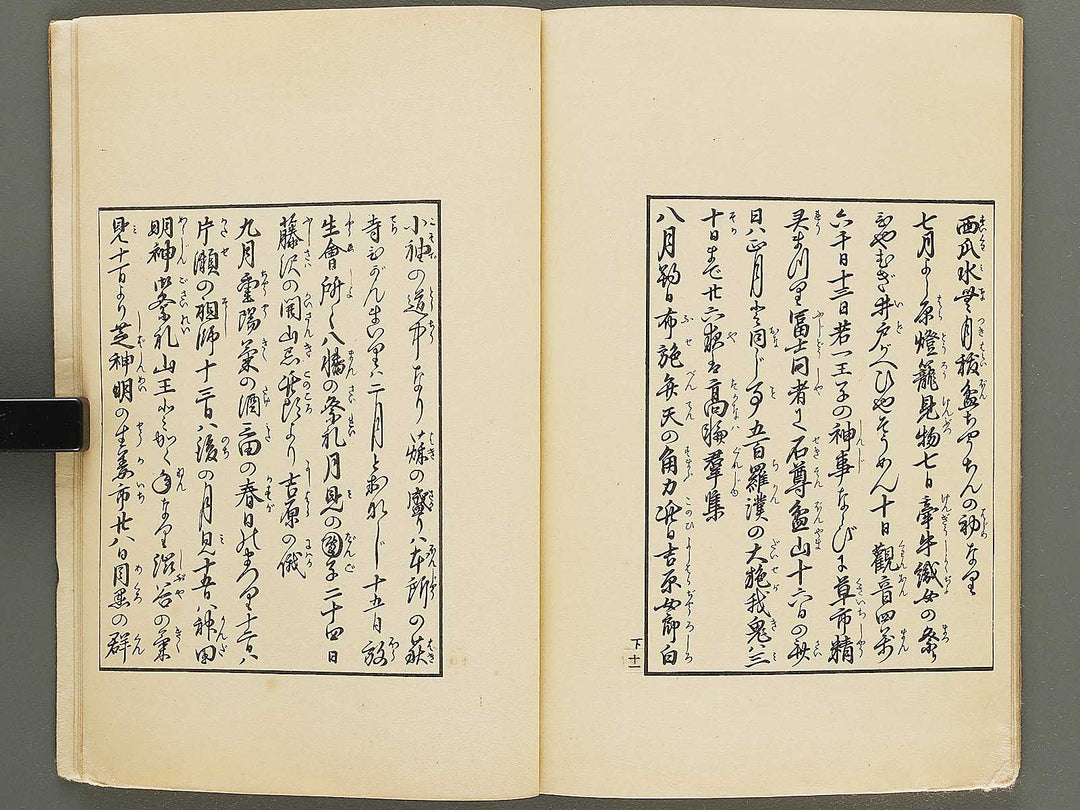 西瓜水無月祓盆ちやうちんの初なり
七月よし原燈籠見物七日牽牛織女の祭
ひやむぎ井戸がへひやそうめん十日觀音四萬
六千日十三日若一王子の神事ならびに草市精
灵まつり冨士同者に石尊盆山十六日の斎
日ハ正月と同じ事五百羅漢の大施我鬼ハ三
十日まで廿六夜は高輪羣集
八月朔日布施弁天の角力此日吉原女郎白
下 十一
小袖の道中なり萩の盛りハ本所の萩
寺ひがんまいり二月とおなじ十五日放
生會所々八幡の祭礼月見の團子二十四日
藤沢の開山忌此頃より吉原の俄
九月重陽菊の酒三田の春日のまつり十二日ハ
片瀬の祖師十三日ハ後の月見十五日ハ神田
明神御祭礼山王とかくねんなり渋谷の菊
見十一日より芝神明の生姜市廿八日目黒の群